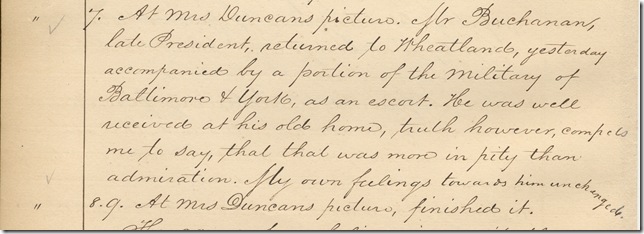 " 7. At Mrs Duncans picture. Mr Buchanan,
late President, returned to Wheatland, yesterday
accompanied by a portion of the Military of
Baltimore & York, as an escort. He was well
received at his old home, truth however, compels
me to say, that that was more in pity than
admiration. My own feelings towards him unchanged.
" 8. 9. At Mrs Duncans picture, finished it.